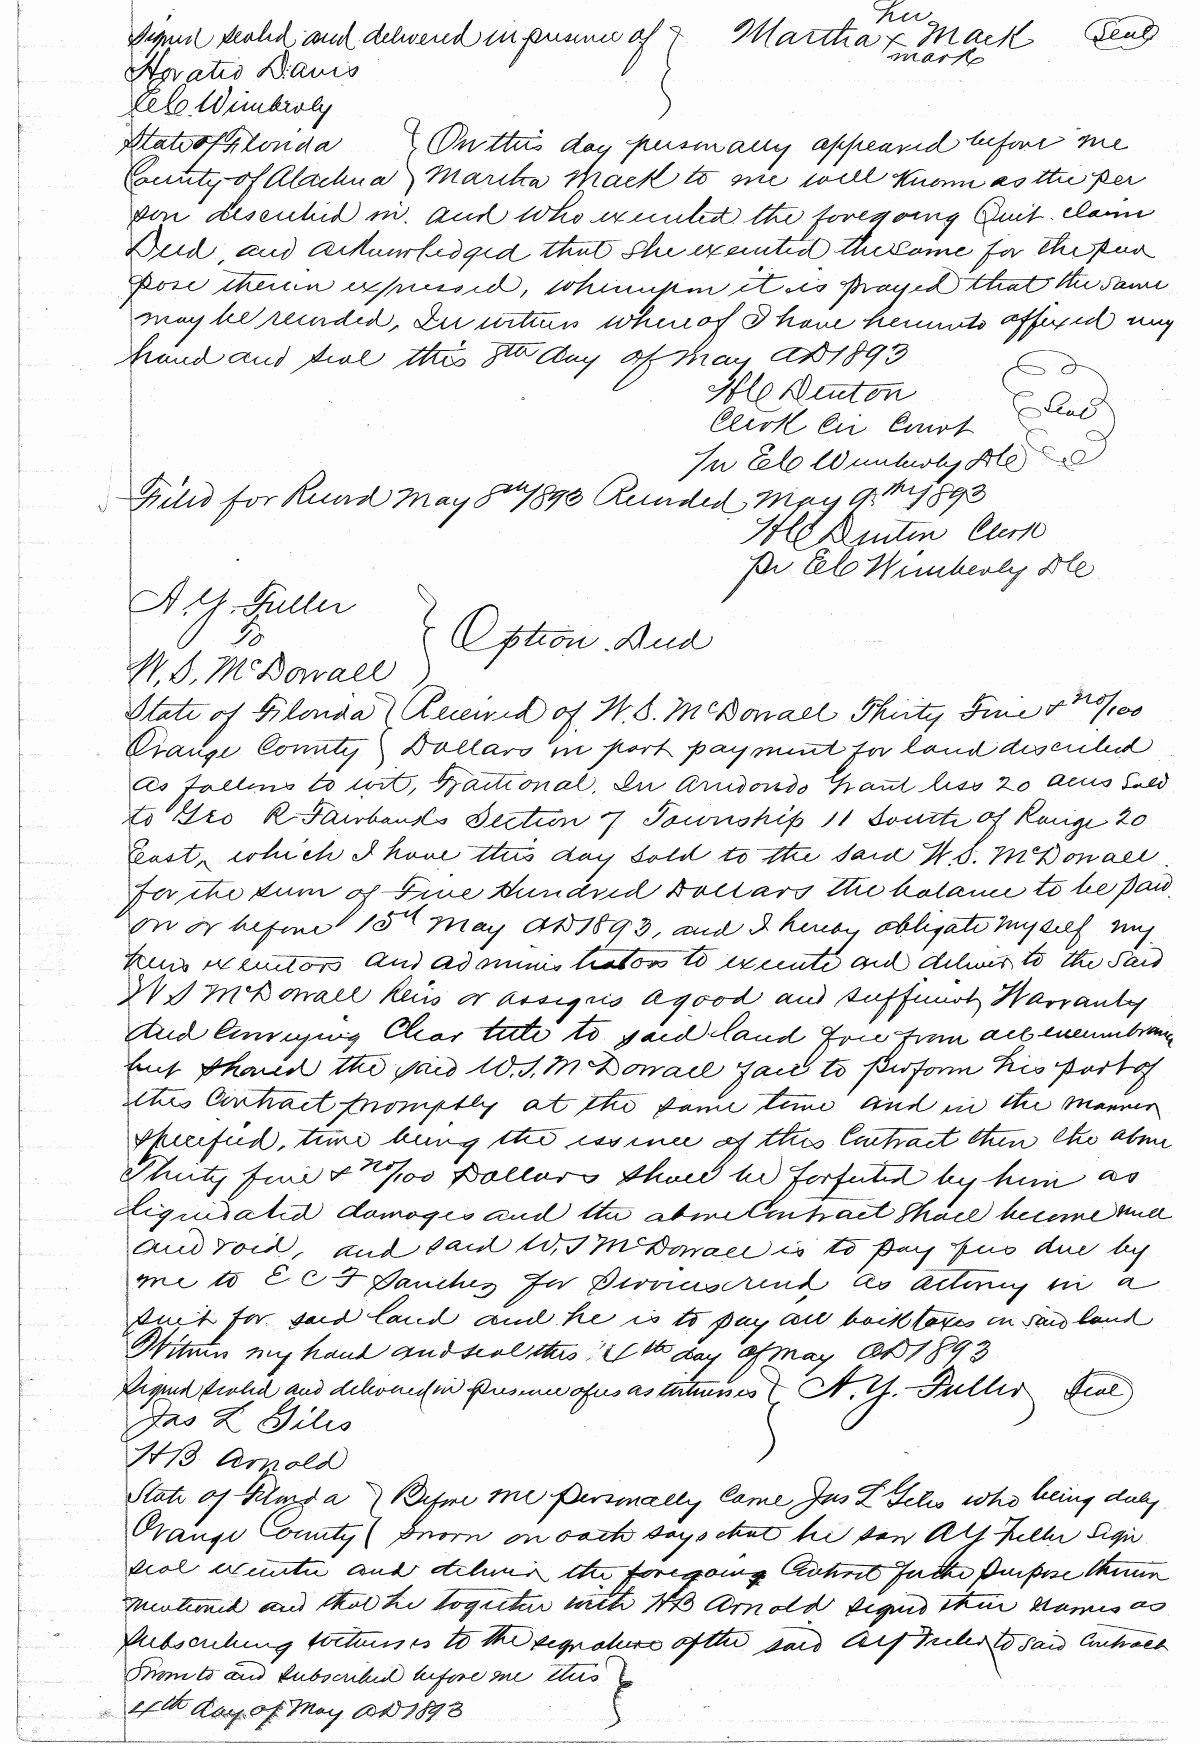 Signed sealed and delivered in presence of } Martha her x mark Mack (Seal)
Horatio Davis
E C Wimberly
State of Florida } On this day personally appeared before me
County of Alachua } Martha Mack to me well known as the per
son described in and who executed the foregoing Quit claim
Deed, and acknowledged that she executed the same for the pur
pose therein expressed, whereupon it is prayed that the same
may be recorded, In witness whereof I have hereunto affixed my
hand and seal this 8th day of May AD 1893
H C Denton
Clerk Cir Court (Seal)
Pr E C Wimberly DC
Filed for Record May 8th 1893 Recorded May 9th 1893
H C Denton Clerk
Pr E C Wimberly DC
A. Y. Fuller
To } Option Deed
W. S. McDowall
State of Florida } Received of W. S. McDowall Thirty Five & no/100
Orange County } Dollars in part payment for land described
as follows to wit, Fractional. In Arredondo Grant less 20 acres sold
to Geo R Fairbanks Section 7 Township 11 South of Range 20
East, which I have this day sold to the said W. S. McDowall
for the sum of Five Hundred Dollars the balance to be paid
on or before 15th May AD 1893, and I hereby obligate myself my
heirs executors and administrators to execute and deliver to the said
W S McDowall heirs or assigns a good and sufficient Warranty
and conveying Clear title to said land free from all encumbrance
but should the said W. S. McDowall fail to perform his part of
this Contract promptly at the same time and in the manner
specified, time being the essence of this Contract then the above
Thirty five & no/100 Dollars shall be forfeited by him as
liquidated damages and the above Contract shall become null
and void, and said W. S McDowall is to pay fees due by
me to E C F Sanchez for Services rend as attorney in a
suit for said land and he is to pay all back taxes on said land
Witness my hand and seal this 4th day of May AD 1893
Signed sealed and delivered in presence of us as witnesses } A. Y. Fuller (Seal)
Jas L Giles
H B Arnold
State of Florida } Before me personally came Jas L Giles who being duly
Orange County } sworn on oath says that he saw A Y Fuller sign
seal execute and deliver the foregoing Contract for the purpose therein
mentioned and that he together with H B Arnold signed their names as
subscribing witnesses to the signature of the said A Y Fuller to said Contract
Sworn to and subscribed before me this }
4th day of May AD 1893